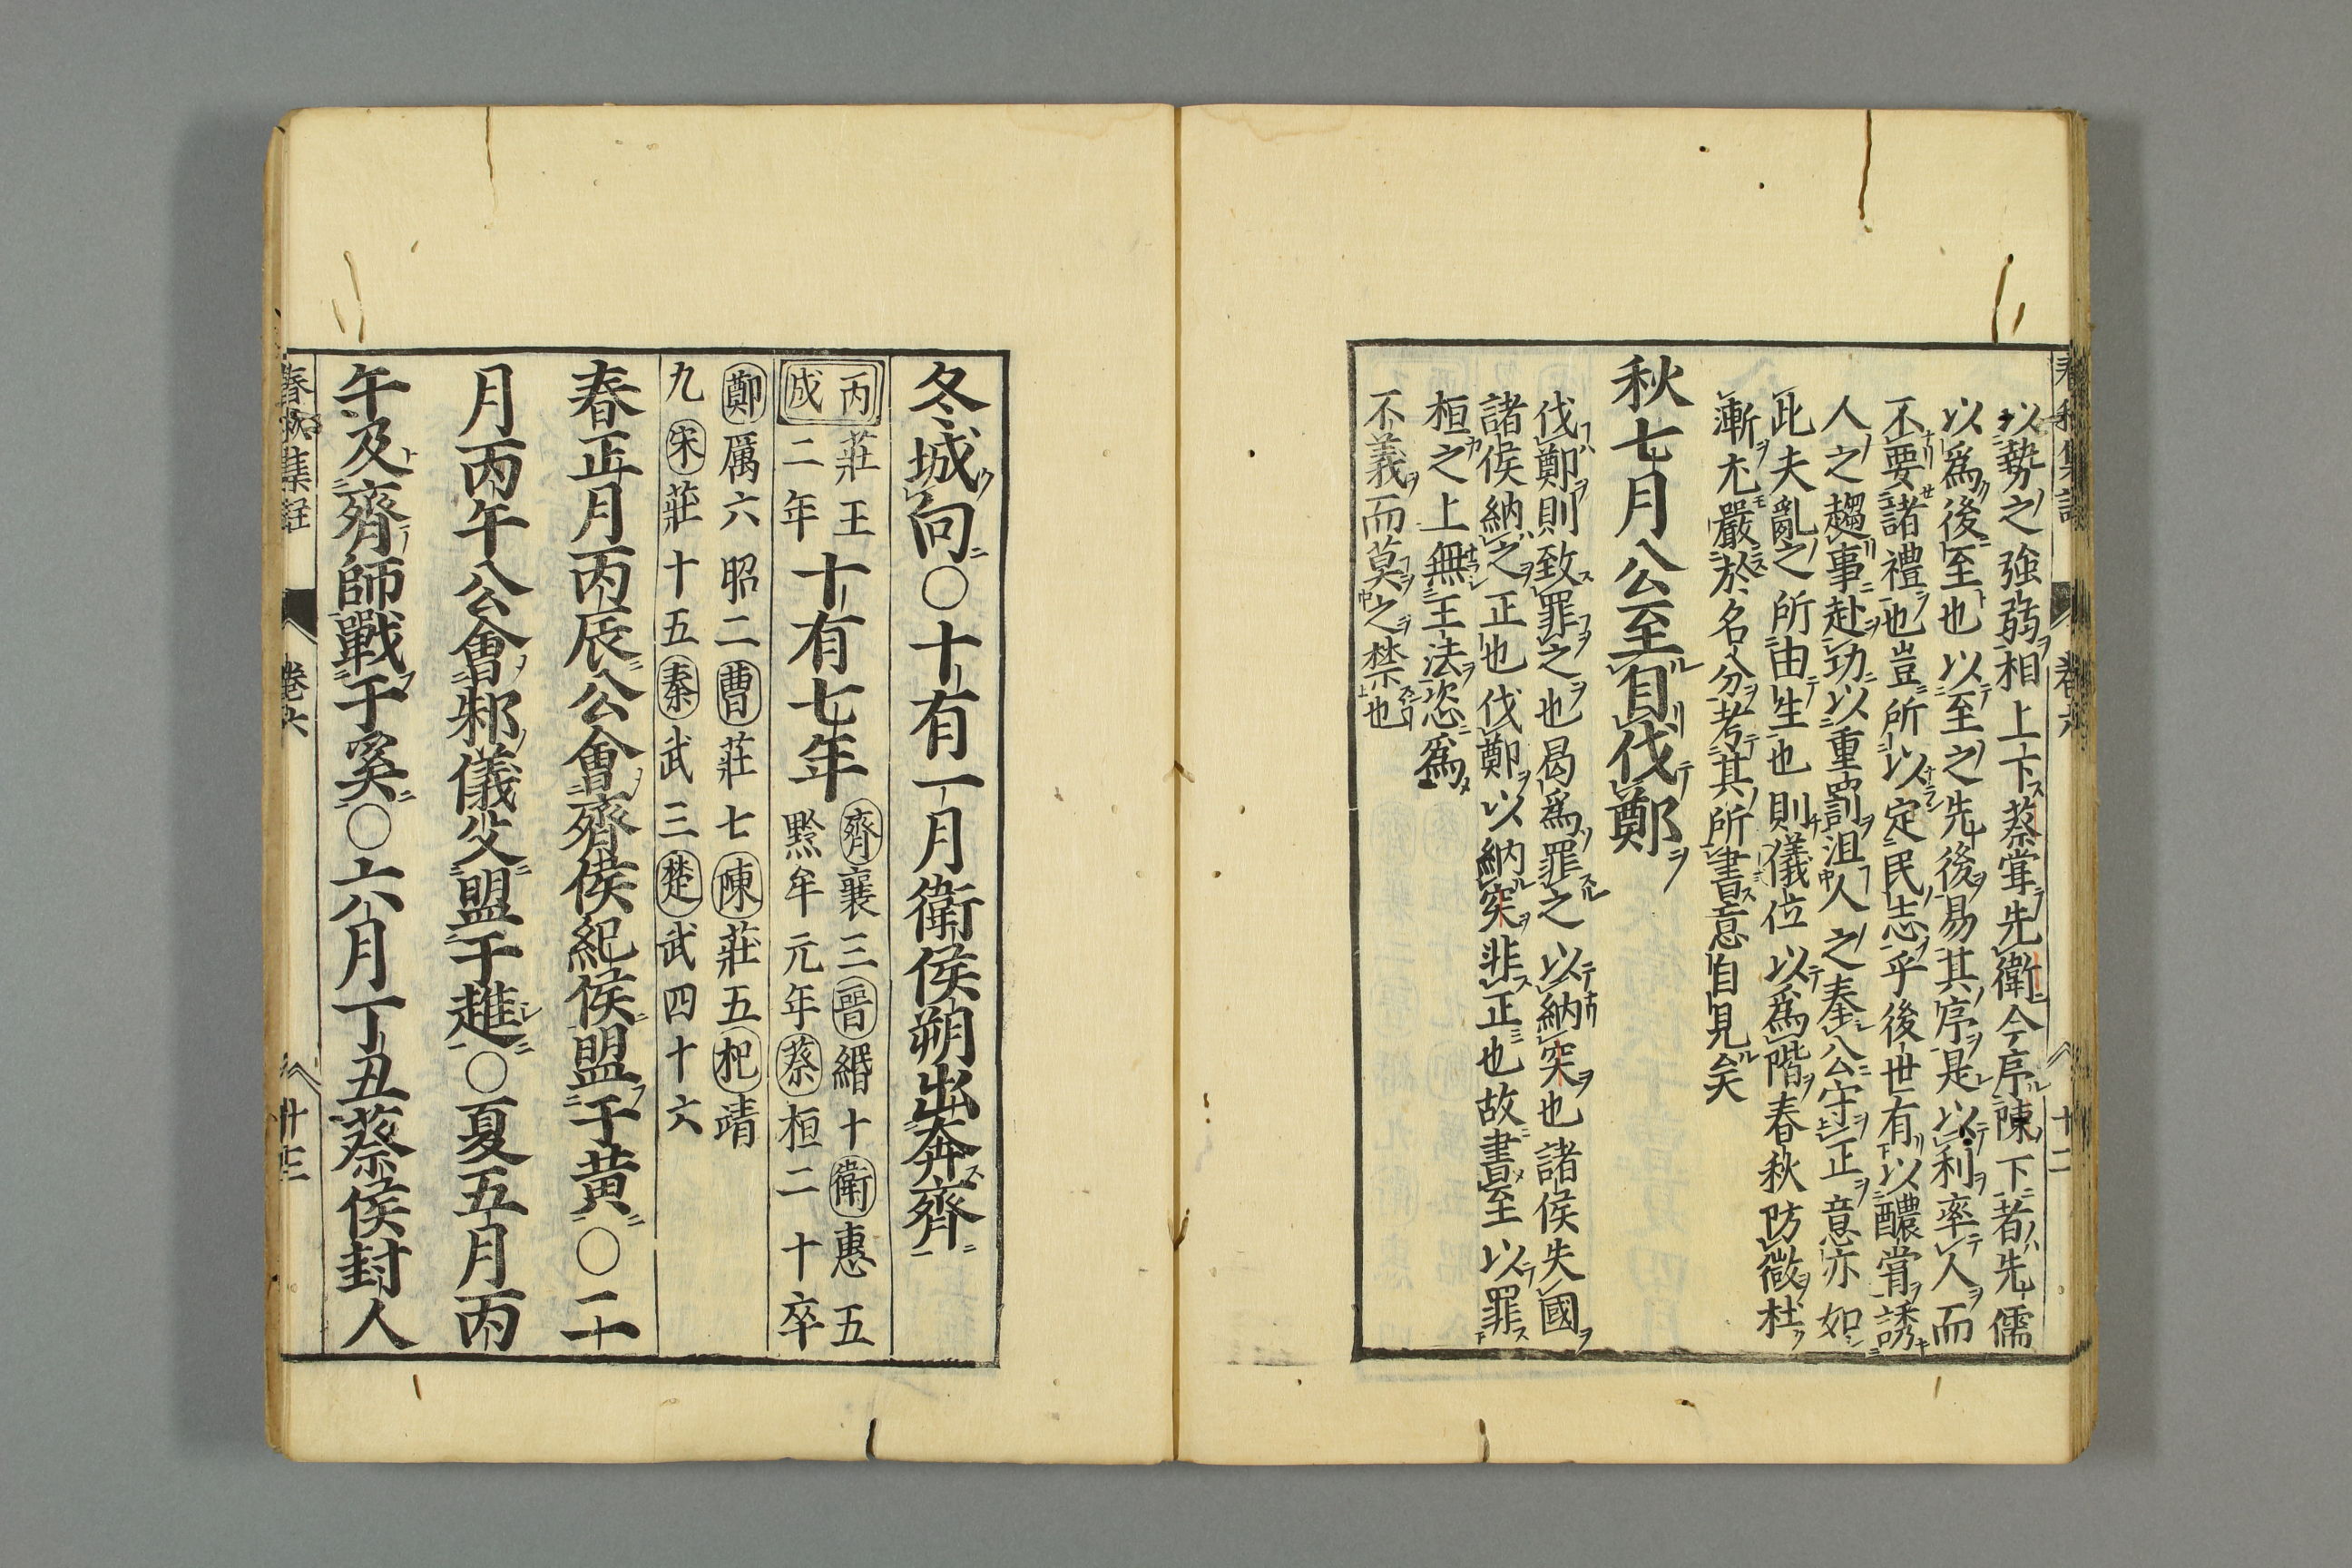 春秋集註 卷六 十二
以勢之強弱相上下蔡嘗先衛今序陳下者先儒
以爲後至也以至之先後易其序是以利率人而
不要諸禮也豈所以定民志乎後世有以醲賞誘
人之趨事赴功以重罰沮人之奉公守正意亦如
此夫亂之所由生也則儀位以爲階春秋防微杜
漸尤嚴於名分考其所書意自見矣
秋七月公至自伐鄭
伐鄭則致罪之也曷爲罪之以納突也諸侯失國
諸侯納之正也伐鄭以納突非正也故書至以罪
桓之上無王法恣爲
不義而莫之禁也
冬城向○十有一月衛侯朔出奔齊
丙戌
莊王
二年
十有七年
齊襄三晉緡十衛惠五
黔牟元年蔡桓二十卒
鄭厲六昭二曹莊七陳莊五杞靖
九宋莊十五秦武三楚武四十六
春正月丙辰公會齊侯紀侯盟于黃○二
月丙午公會邾儀父盟于趡○夏五月丙
午及齊師戰于奚○六月丁丑蔡侯封人
春秋集註 卷六 十三